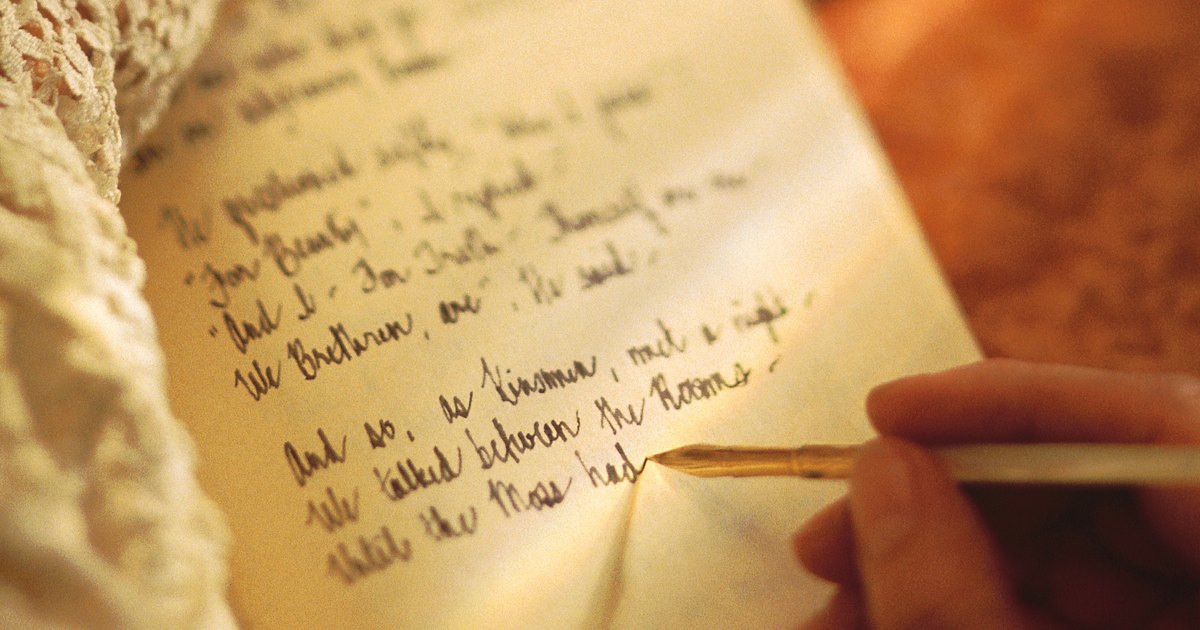 in an adjoining Room
He questioned softly "Why I
"For Beauty", I replied -
"And I - For Truth - Themself are One
We Brethren, are", He said -
And so, as Kinsmen, met a night -
We talked between the Rooms -
Until the Moss had